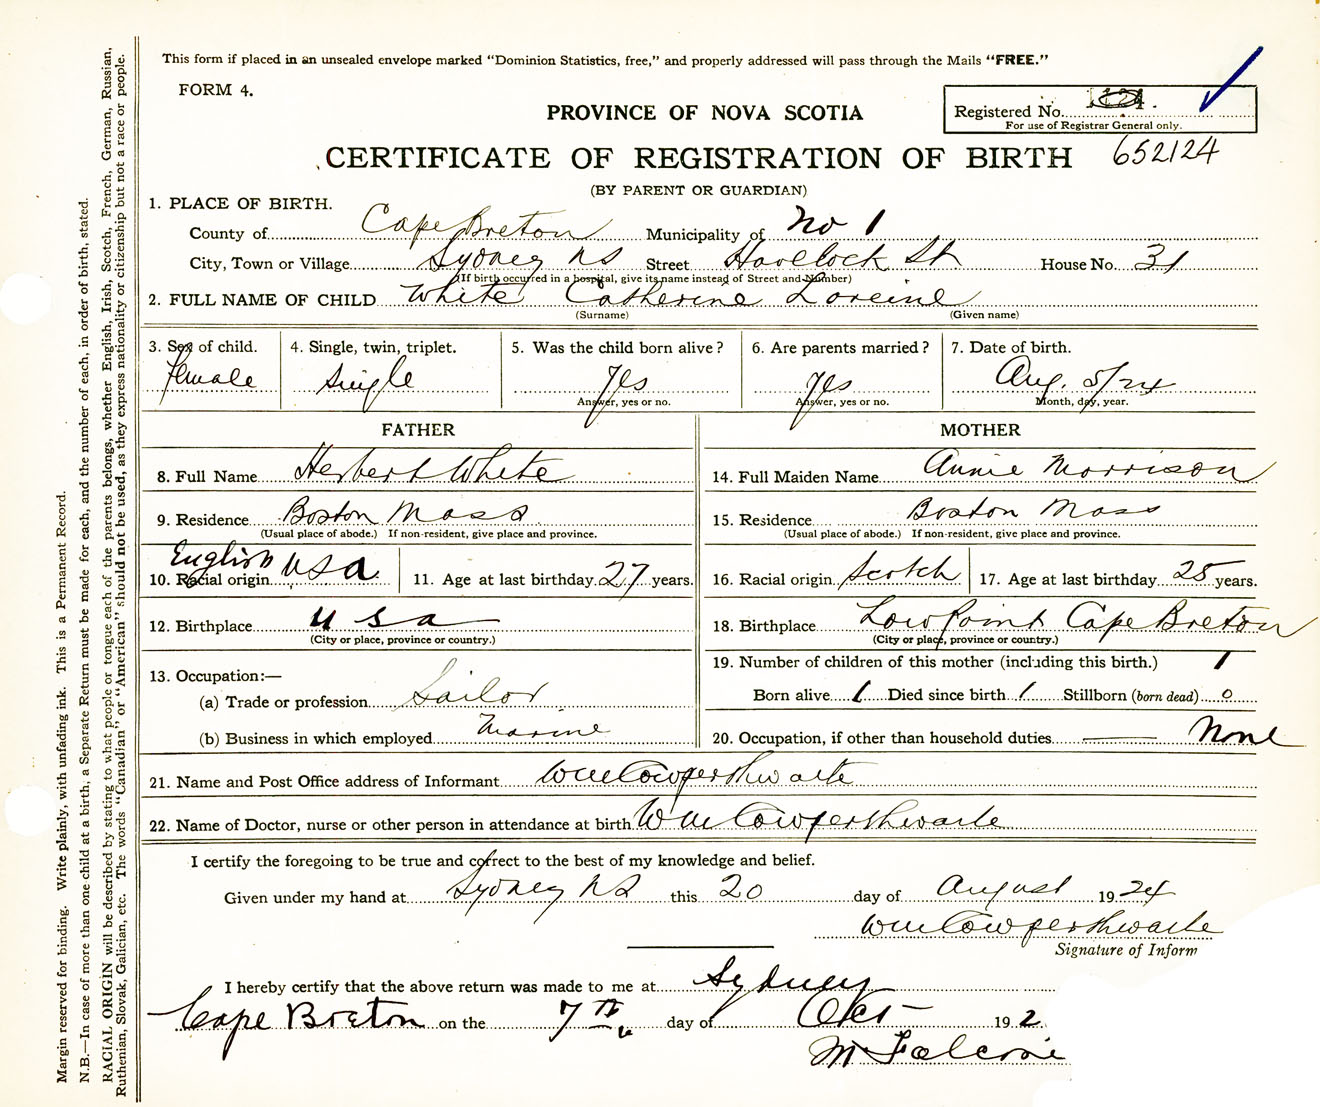 This form if placed in an unsealed envelope marked "Dominion Statistics, free," and properly addressed will pass through the Mails "FREE."
FORM 4.
PROVINCE OF NOVA SCOTIA
Registered No.
For use of Registrar General only.
CERTIFICATE OF REGISTRATION OF BIRTH 652124
(BY PARENT OR GUARDIAN)
1. PLACE OF BIRTH.
County of Cape Breton Municipality of No 1
City, Town or Village Sydney NS Street Havelock St House No. 31
(If birth occurred in a hospital, give its name instead of Street and Number)
2. FULL NAME OF CHILD White Catherine Loreine
(Surname) (Given name)
3. Sex of child. 4. Single, twin, triplet. 5. Was the child born alive? 6. Are parents married? 7. Date of birth.
Female Single Yes Yes Aug. 5/24
Answer, yes or no. Answer, yes or no. Month, day, year.
FATHER MOTHER
8. Full Name Herbert White 14. Full Maiden Name Annie Morrison
9. Residence Boston Mass. 15. Residence Boston Mass
(Usual place of abode.) If non-resident, give place and province. (Usual place of abode.) If non-resident, give place and province.
English
10. Racial origin USA 11. Age at last birthday 27 years. 16. Racial origin Scotch 17. Age at last birthday 25 years.
12. Birthplace U S a 18. Birthplace Low Point Cape Breton
(City or place, province or country.) (City or place, province or country.)
13. Occupation:— 19. Number of children of this mother (including this birth.) 1
(a) Trade or profession Sailor Born alive 1 Died since birth 1 Stillborn (born dead) 0
(b) Business in which employed Marine 20. Occupation, if other than household duties —— None
21. Name and Post Office address of Informant Wm Cowperthwaite
22. Name of Doctor, nurse or other person in attendance at birth Wm Cowperthwaite
I certify the foregoing to be true and correct to the best of my knowledge and belief.
Given under my hand at Sydney NS this 20 day of August 1924
Wm Cowperthwaite
Signature of Inform
I hereby certify that the above return was made to me at Sydney
Cape Breton on the 7th day of Oct 192
Margin reserved for binding. Write plainly, with unfading ink. This is a Permanent Record.
N.B.—In case of more than one child at a birth, a Separate Return must be made for each, and the number of each, in order of birth, stated.
RACIAL ORIGIN will be described by stating to what people or tongue each of the parents belongs, whether English, Irish, Scotch, French, German, Russian,
Ruthenian, Slovak, Galician, etc. The words "Canadian" or "American" should not be used, as they express nationality or citizenship but not a race or people.